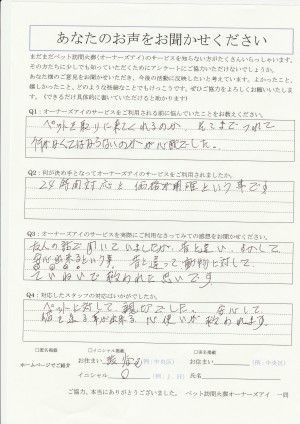 あなたのお声をお聞かせください
まだまだペット訪問火葬(オーナーズアイ)のサービスを知らない方がたくさんいらっしゃいます。
その方たちに少しでも知っていただくためにアンケートにご協力いただけないでしょうか。
あなた様のご意見をお聞かせいただき、今後の活動に反映したいと考えています。よかったこと、
嬉しかったこと、どのような些細なことでもけっこうです。ぜひご協力をよろしくお願いいたしま
す。(できるだけ具体的に書いていただけると助かります)
Q1:オーナーズアイのサービスをご利用される前に悩んでいたことをお教えください。
ペットを取りに来てくれるのか、
行かなくてはならないのかが心配でした。
Q2:何が決め手となってオーナーズアイのサービスをご利用されましたか。
24時間対応と価格が明確という事です
Q3:オーナーズアイのサービスを実際にご利用なさってみての感想をお聞かせください。
友人の話で聞いていましたが、昔と違い、
安心出来るという事、昔と違って動物に対して、
ていねいで救われた思いです
Q4:対応したスタッフの対応はいかがでしたか。
ペットに対して親切でした。安心して
心使いが救われます。
□匿名掲載 □イニシャル掲載 □実名掲載
ホームページでご紹介 お住まい (例:中央区) お住まい (例:中央区)
イニシャル O 氏名
ご協力、本当にありがとうございました。 ペット訪問火葬オーナーズアイ 一同